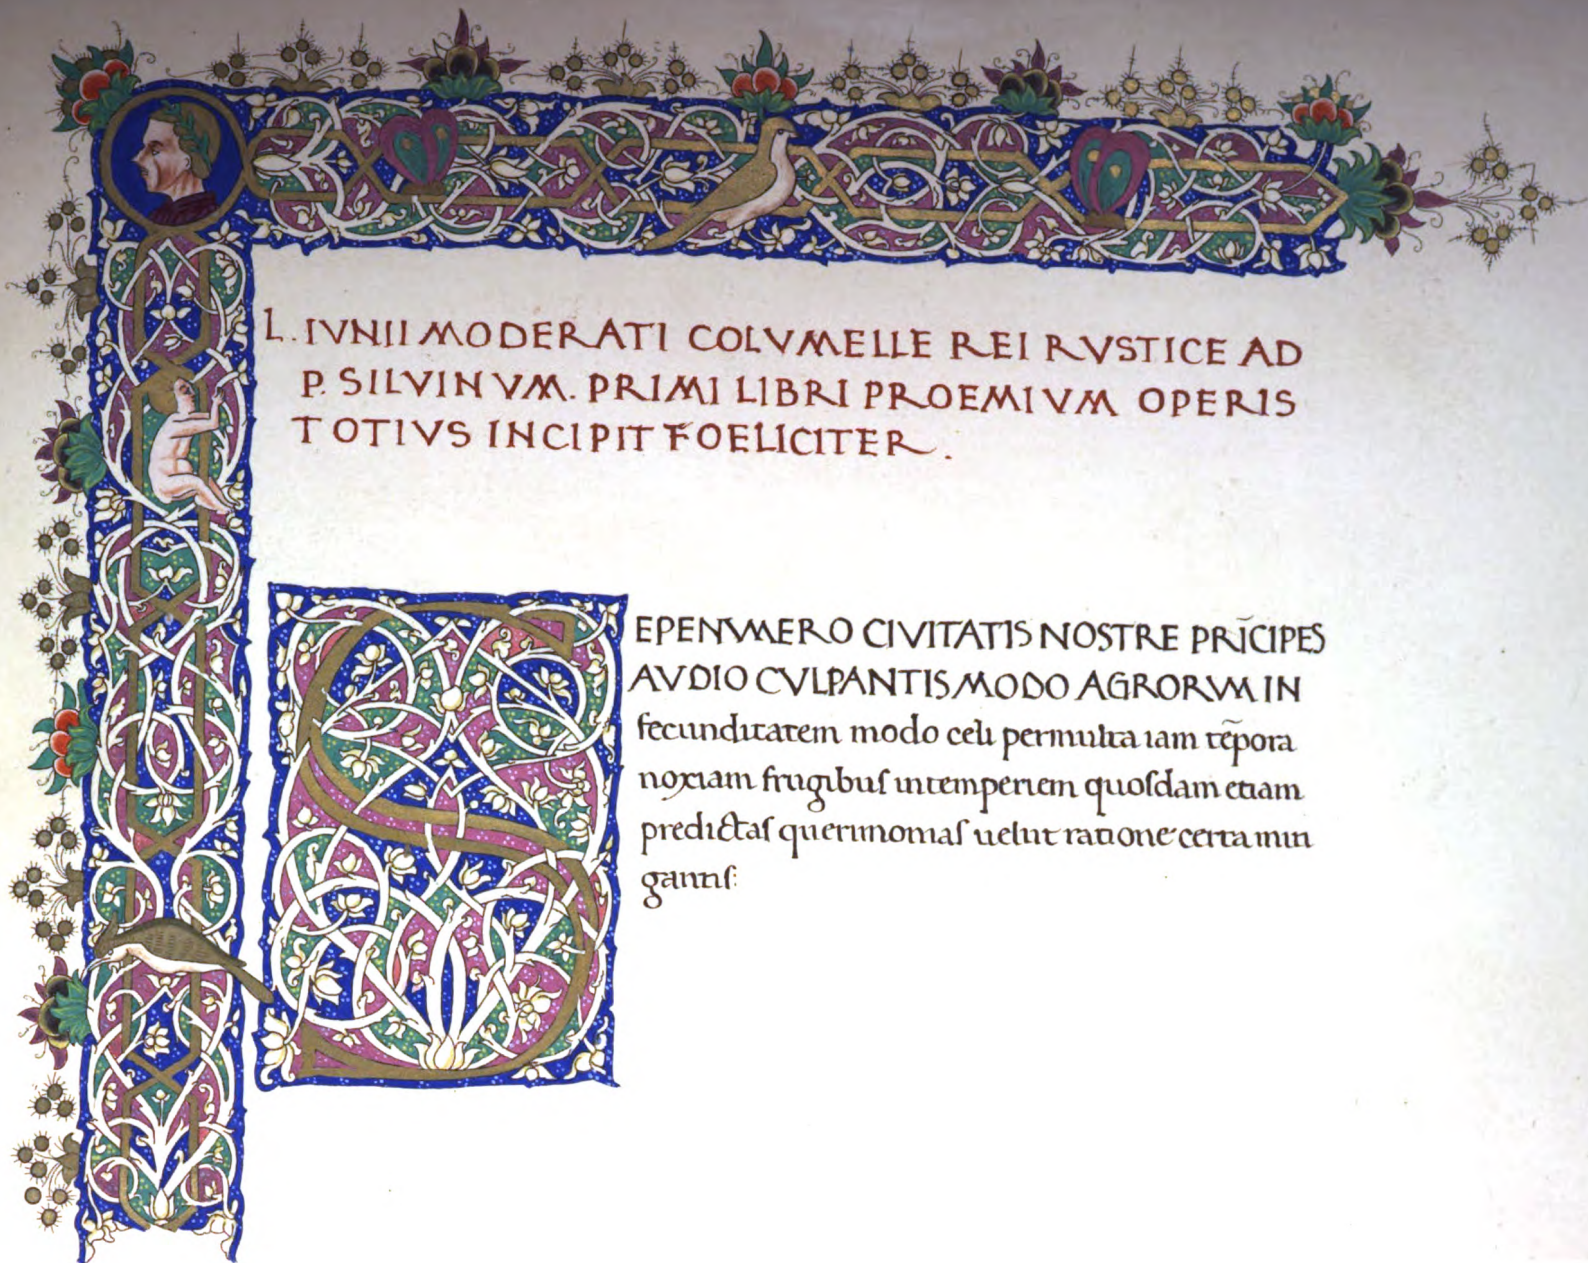 L. IVNII MODERATI COLVMELLE REI RVSTICE AD
P. SILVINVM. PRIMI LIBRI PROEMIVM OPERIS
TOTIVS INCIPIT FOELICITER.
SEPENVMERO CIVITATIS NOSTRE PRĪCIPES
AVDIO CVLPANTIS MODO AGRORVM IN
fecunditatem modo celi permulta iam tēpora
noxiam frugibuſ intemperiem quoſdam etiam
predictaſ querimoniaſ uelut ratione certa miti
gantiſ: